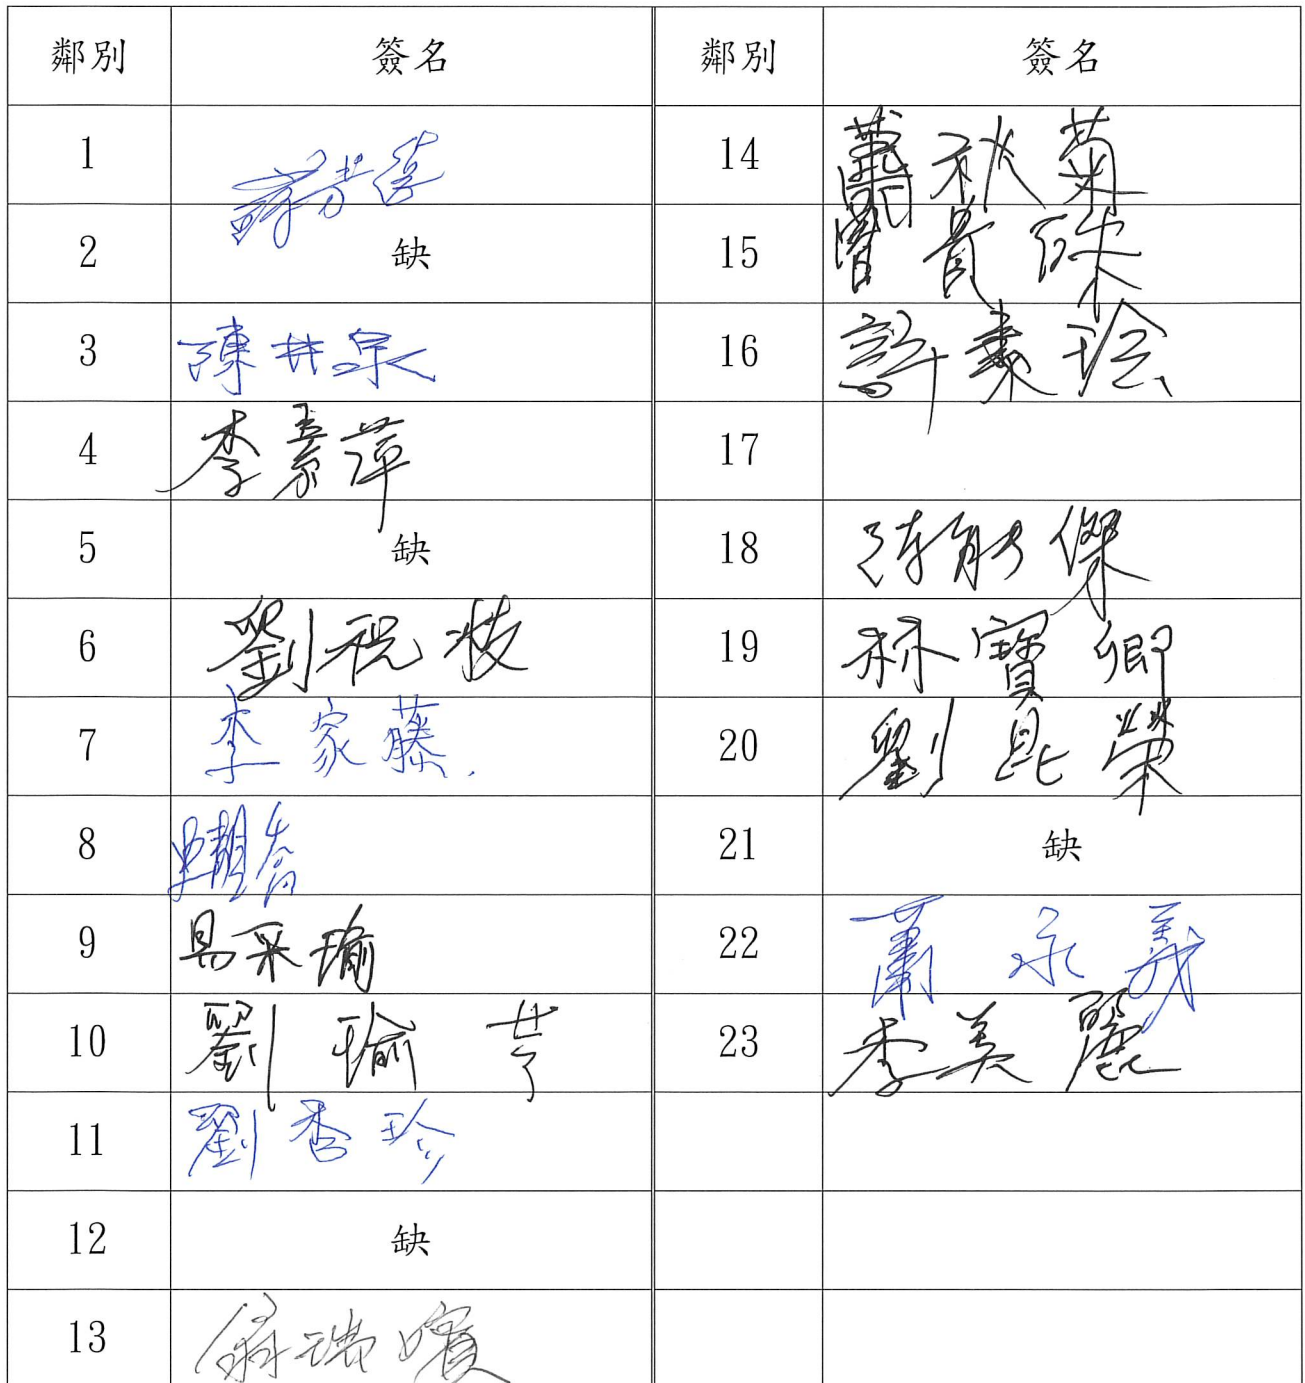 鄰別 簽名 鄰別 簽名
1 14 蕭秋菊
2 缺 15 曾貴珠
3 陳井泉 16 許素玲
4 李素萍 17
5 缺 18
6 劉祝枝 19 林寶卿
7 李家藤 20 劉昆榮
8 21 缺
9 吳采瑜 22 蕭永義
10 劉瑜 23 李美麗
11 劉香珍
12 缺
13